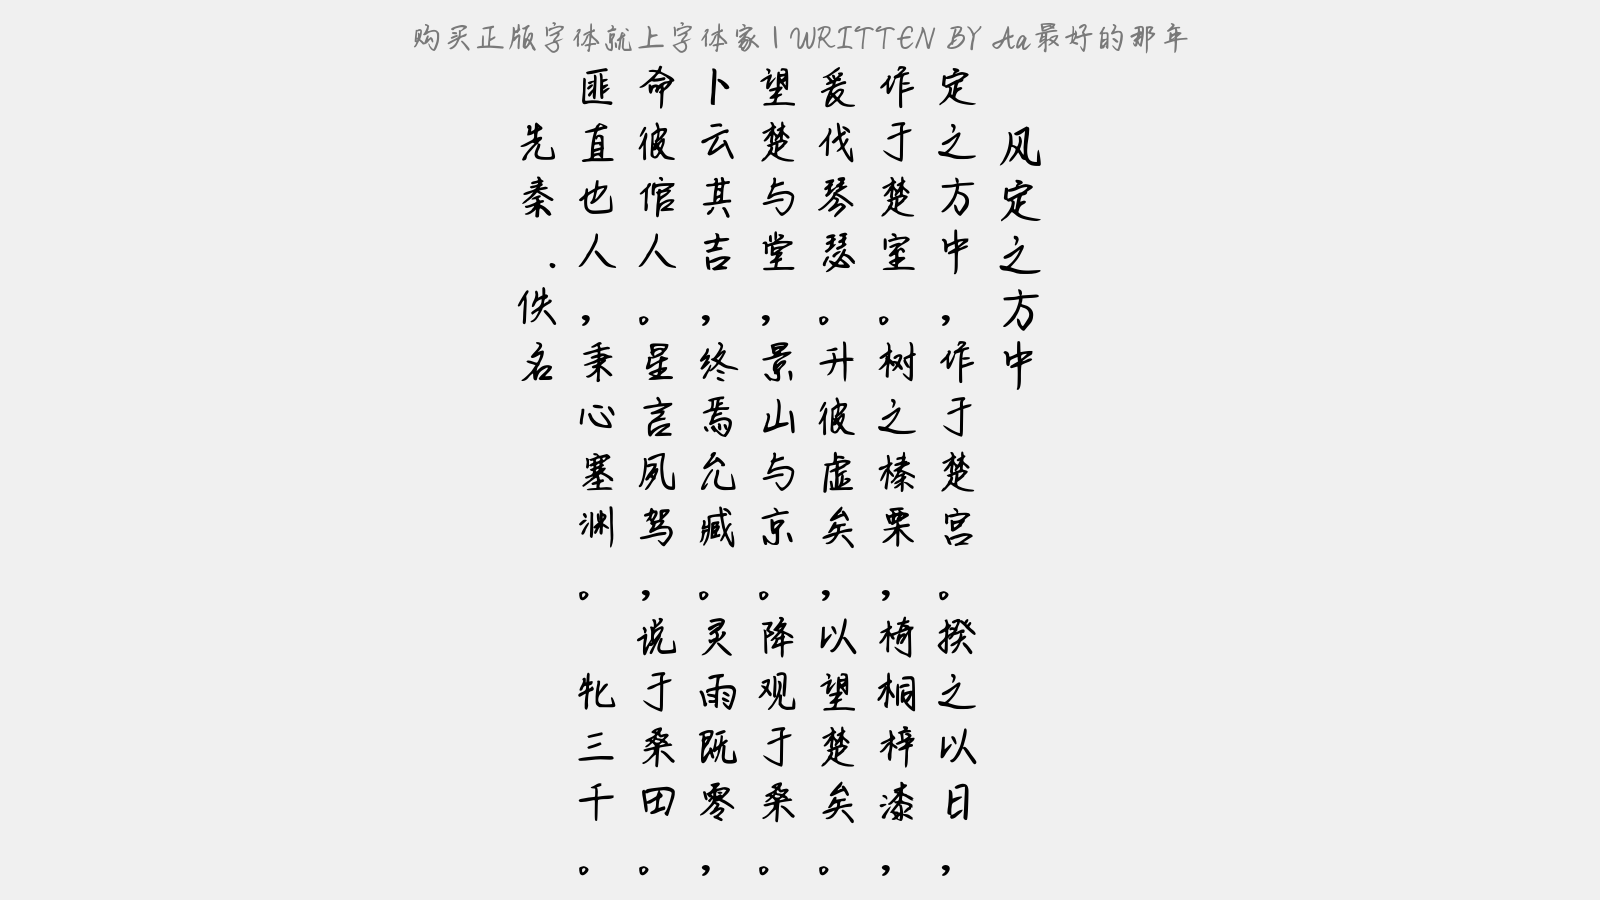 购买正版字体就上字体家 | WRITTEN BY Aa最好的那年
风定之方中
定之方中，作于楚宫。揆之以日，
作于楚室。树之榛栗，椅桐梓漆，
爰伐琴瑟。升彼虚矣，以望楚矣。
望楚与堂，景山与京。降观于桑。
卜云其吉，终焉允臧。灵雨既零，
命彼倌人。星言夙驾，说于桑田。
匪直也人，秉心塞渊。 牝三千。
先秦.佚名